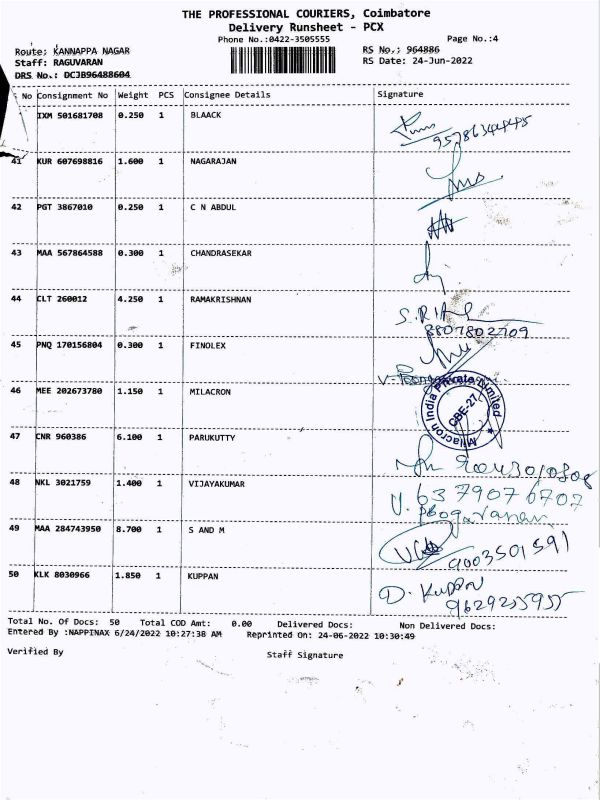 THE PROFESSIONAL COURIERS, Coimbatore
Delivery Runsheet - PCX
Phone No.:0422-3505555
Page No.:4
Route: KANNAPPA NAGAR
RS No.: 964886
Staff: RAGUVARAN
RS Date: 24-Jun-2022
DRS No.: DCJB96488604
No Consignment No Weight PCS Consignee Details Signature
IXM 501681708 0.250 1 BLAACK
41 KUR 607698816 1.600 1 NAGARAJAN
42 PGT 3867010 0.250 1 C N ABDUL
43 MAA 567864588 0.300 1 CHANDRASEKAR
44 CLT 260012 4.250 1 RAMAKRISHNAN
8807802709
45 PNQ 170156804 0.300 1 FINOLEX
46 MEE 202673780 1.150 1 MILACRON
Milacron India Private Limited
CBE-27
47 CNR 960386 6.100 1 PARUKUTTY
48 NKL 3021759 1.400 1 VIJAYAKUMAR
V. 6379076707
49 MAA 284743950 8.700 1 S AND M
9003501591
50 KLK 8030966 1.850 1 KUPPAN
D. Kuppan
9629255955
Total No. Of Docs: 50 Total COD Amt: 0.00 Delivered Docs: Non Delivered Docs:
Entered By :NAPPINAX 6/24/2022 10:27:38 AM Reprinted On: 24-06-2022 10:30:49
Verified By Staff Signature